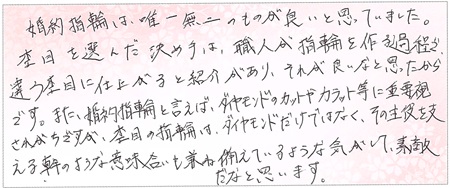 婚約指輪は、唯一無二のものが良いと思っていました。
杢目を選んだ決め手は、職人が指輪を作る過程で
違う杢目に仕上がると紹介があり、それが良いなと思ったから
です。また、婚約指輪と言えば、ダイヤモンドのカットやカラット等に重要視
されがちですが、杢目の指輪は、ダイヤモンドだけではなく、その主役を支
える軒のような意味合いも兼ね備えているような気がして、素敵
だなと思います。